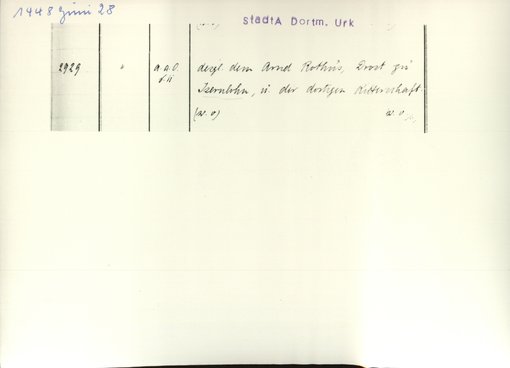 1448 Juni 28
StadtA Dortm. Urk
2929 " a.a.O. desgl. dem Arnd Rothus, Drost zu
Isernlohn, u. der dortigen Ritterschaft
(w. o) w. o.